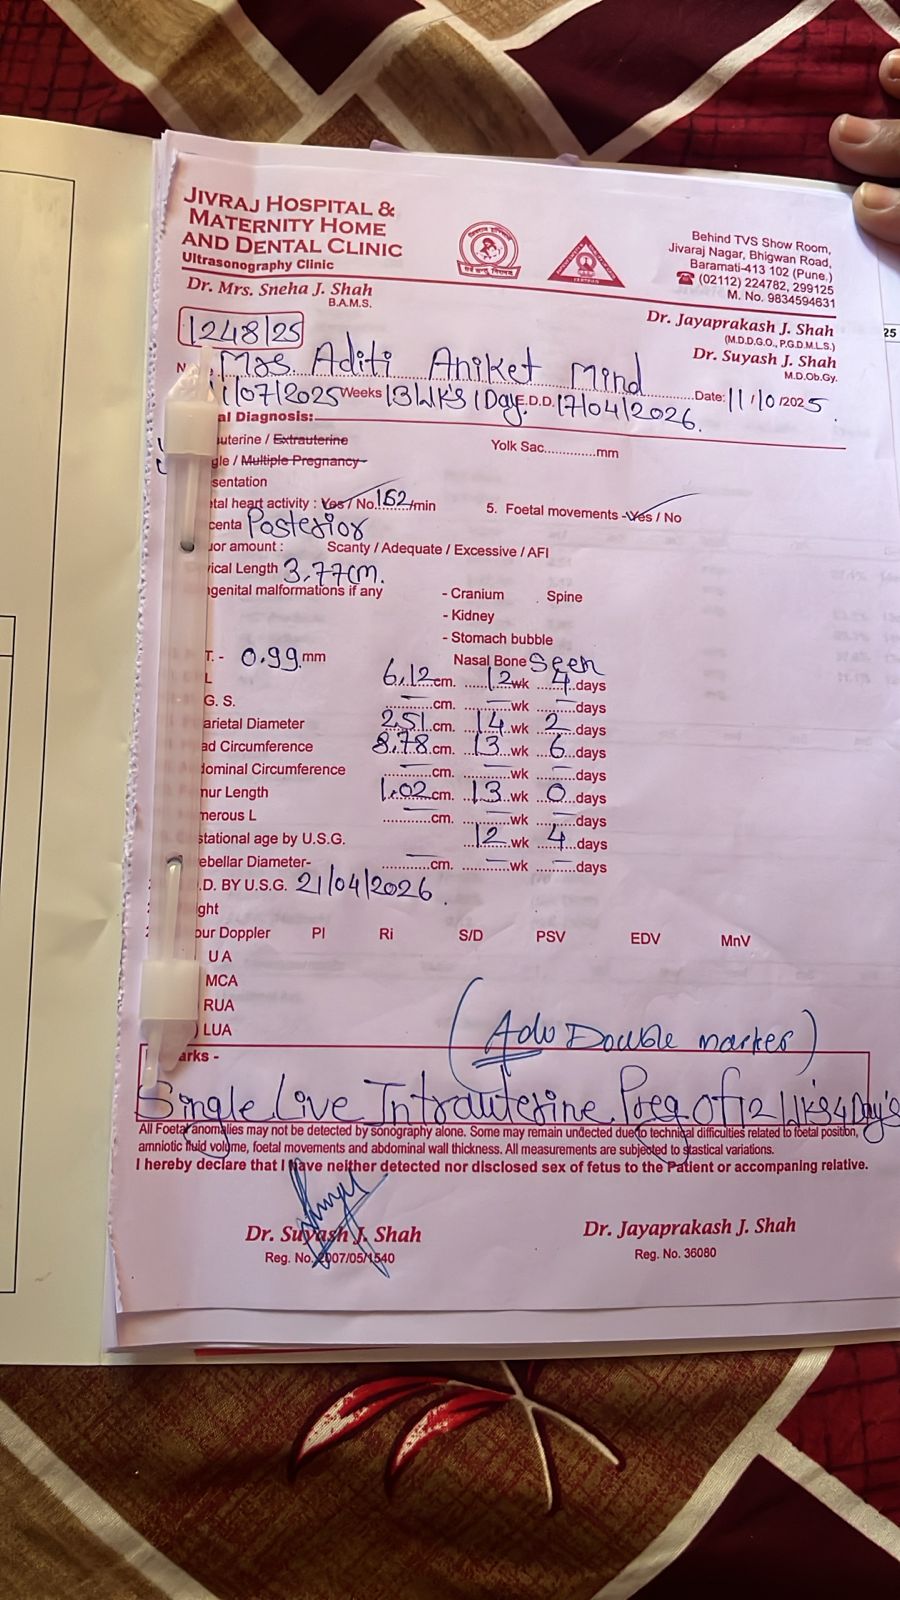 JIVRAJ HOSPITAL &
MATERNITY HOME
AND DENTAL CLINIC
Ultrasonography Clinic
Behind TVS Show Room,
Jivaraj Nagar, Bhigwan Road,
Baramati-413 102 (Pune.)
☎ (02112) 224782, 299125
M. No. 9834594631
Dr. Mrs. Sneha J. Shah
B.A.M.S.
Dr. Jayaprakash J. Shah
(M.D.D.G.O., P.G.D.M.L.S.)
Dr. Suyash J. Shah
M.D.Ob.Gy.
1248/25
25
N Mrs Aditi Aniket Mind
1/07/2025 Weeks 13 WKS 1 Day E.D.D. 17/04/2026. Date: 11/10/2025.
al Diagnosis:
uterine / Extrauterine Yolk Sac.............mm
gle / Multiple Pregnancy
sentation
etal heart activity : Yes / No. 152 /min 5. Foetal movements - Yes / No
centa Posterior
uor amount : Scanty / Adequate / Excessive / AFI
vical Length 3.77cm.
genital malformations if any - Cranium Spine
- Kidney
- Stomach bubble
T. - 0.99 mm Nasal Bone Seen
L 6.12 cm. 12 wk 4 days
G. S. — cm. — wk — days
arietal Diameter 2.51 cm. 14 wk 2 days
ad Circumference 8.78 cm. 13 wk 6 days
dominal Circumference — cm. — wk — days
nur Length 1.02 cm. 13 wk 0 days
nerous L — cm. — wk — days
stational age by U.S.G. 12 wk 4 days
ebellar Diameter- — cm. — wk — days
.D. BY U.S.G. 21/04/2026.
ght
our Doppler PI Ri S/D PSV EDV MnV
U A
MCA
RUA
) LUA
(Adv Double marker)
arks -
Single Live Intrauterine Preg of 12 WKS 4 Day's
All Foetal anomalies may not be detected by sonography alone. Some may remain undected due to technical difficulties related to foetal position,
amniotic fluid volume, foetal movements and abdominal wall thickness. All measurements are subjected to stastical variations.
I hereby declare that I have neither detected nor disclosed sex of fetus to the Patient or accompaning relative.
Dr. Suyash J. Shah
Reg. No. 2007/05/1540
Dr. Jayaprakash J. Shah
Reg. No. 36080